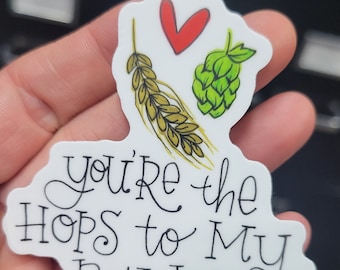 you're the
HOPS to MY